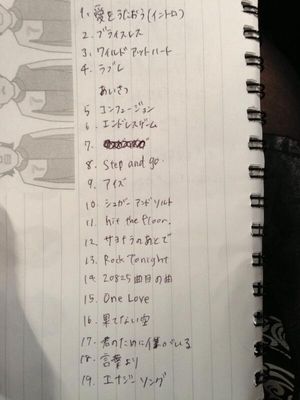 1. 愛をうたおう(イントロ)
2. プライスレス
3. ワイルド アット ハート
4. ラブレ
あいさつ
5 コンフュージョン
6. エンドレスゲーム
7.
8. Step and go.
9. アイズ
10. シュガー アンド ソルト
11. hit the floor.
12. サヨナラのあとで
13. Rock Tonight
14. 20825曲目の曲
15. One Love
16. 果てない空
17. 君のために僕がいる
18. 言葉より
19. エナジーソング